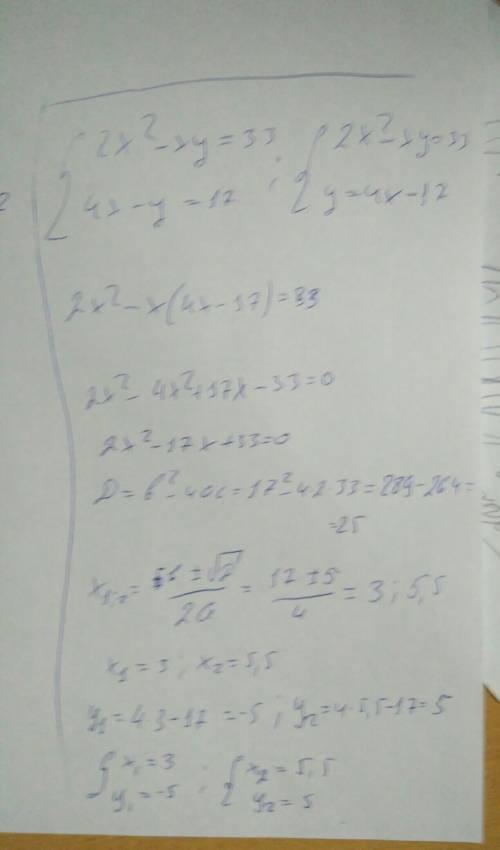 { 2x² - xy = 33 ; { 2x² - xy = 33
{ 4x - y = 17 ; { y = 4x - 17
2x² - x(4x - 17) = 33
2x² - 4x² + 17x - 33 = 0
2x² - 17x + 33 = 0
D = b² - 4ac = 17² - 4·2·33 = 289 - 264 =
= 25
= 17 ± 5 / 4 = 3 ; 5,5
x₁ = 3 ; x₂ = 5,5
y₁ = 4·3 - 17 = -5 ; y₂ = 4·5,5 - 17 = 5
{ x₁ = 3 ; { x₂ = 5,5
{ y₁ = -5 ; { y₂ = 5